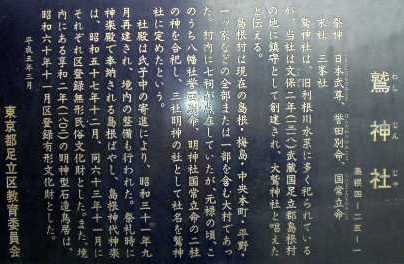 わし じん じゃ
鷲神社
島根四ー二五ー一
祭神 日本武尊、誉田別命、国常立命
末社 三峯社
鷲神社は、旧利根川水系に多く祀られている
が、当社は文保二年(一三一八)武蔵国足立郡島根村
の地に鎮守として創建され、大鷲神社と唱えた
と伝える。
島根村は現在の島根・梅島・中央本町・平野・
一ッ家などの全部または一部を含む大村であっ
た。村内に七祠が点在していたが、元禄の頃、こ
のうち八幡社誉田別命、明神社国常立命の二社
の神を合祀し、三社明神の社として社名を鷲神
社に定めたという。
社殿は氏子中の寄進により、昭和三十一年九
月再建され、境内の整備も行われた。祭礼時に
神楽殿で奉納される島根ばやし、島根神代神楽
は、昭和五十七年十二月、同六十三年十一月に
それぞれ区登録無形民俗文化財とした。また、境
内にある享和二年(一八〇二)の明神型石造鳥居は、
昭和六十年十一月区登録有形文化財とした。
平成五年三月
東京都足立区教育委員会